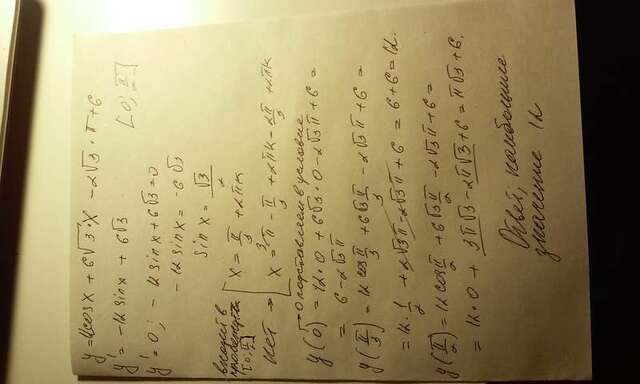 y = 12cosx + 6√3·x − 2√3·π + 6
y' = −12sinx + 6√3 [0; π/2]
y' = 0; −12sinx + 6√3 = 0
−12sinx = −6√3
sinx = √3/2
входит в промежуток [0; π/2] x = π/3 + 2πk
нет → x = π − π/3 + 2πk = 2π/3 + 2πk
→ 0 подставляем в условие
y(0) = 12·0 + 6√3·0 − 2√3π + 6 =
= 6 − 2√3π
y(π/3) = 12cos π/3 + 6√3 π/3 − 2√3π + 6 =
= 12·1/2 + 2√3π − 2√3π + 6 = 6 + 6 = 12.
y(π/2) = 12cos π/2 + 6√3π/2 − 2√3π + 6 =
= 12·0 + 3π√3 − 2π√3 + 6 = π√3 + 6.
Ответ, наибольшее
значение 12